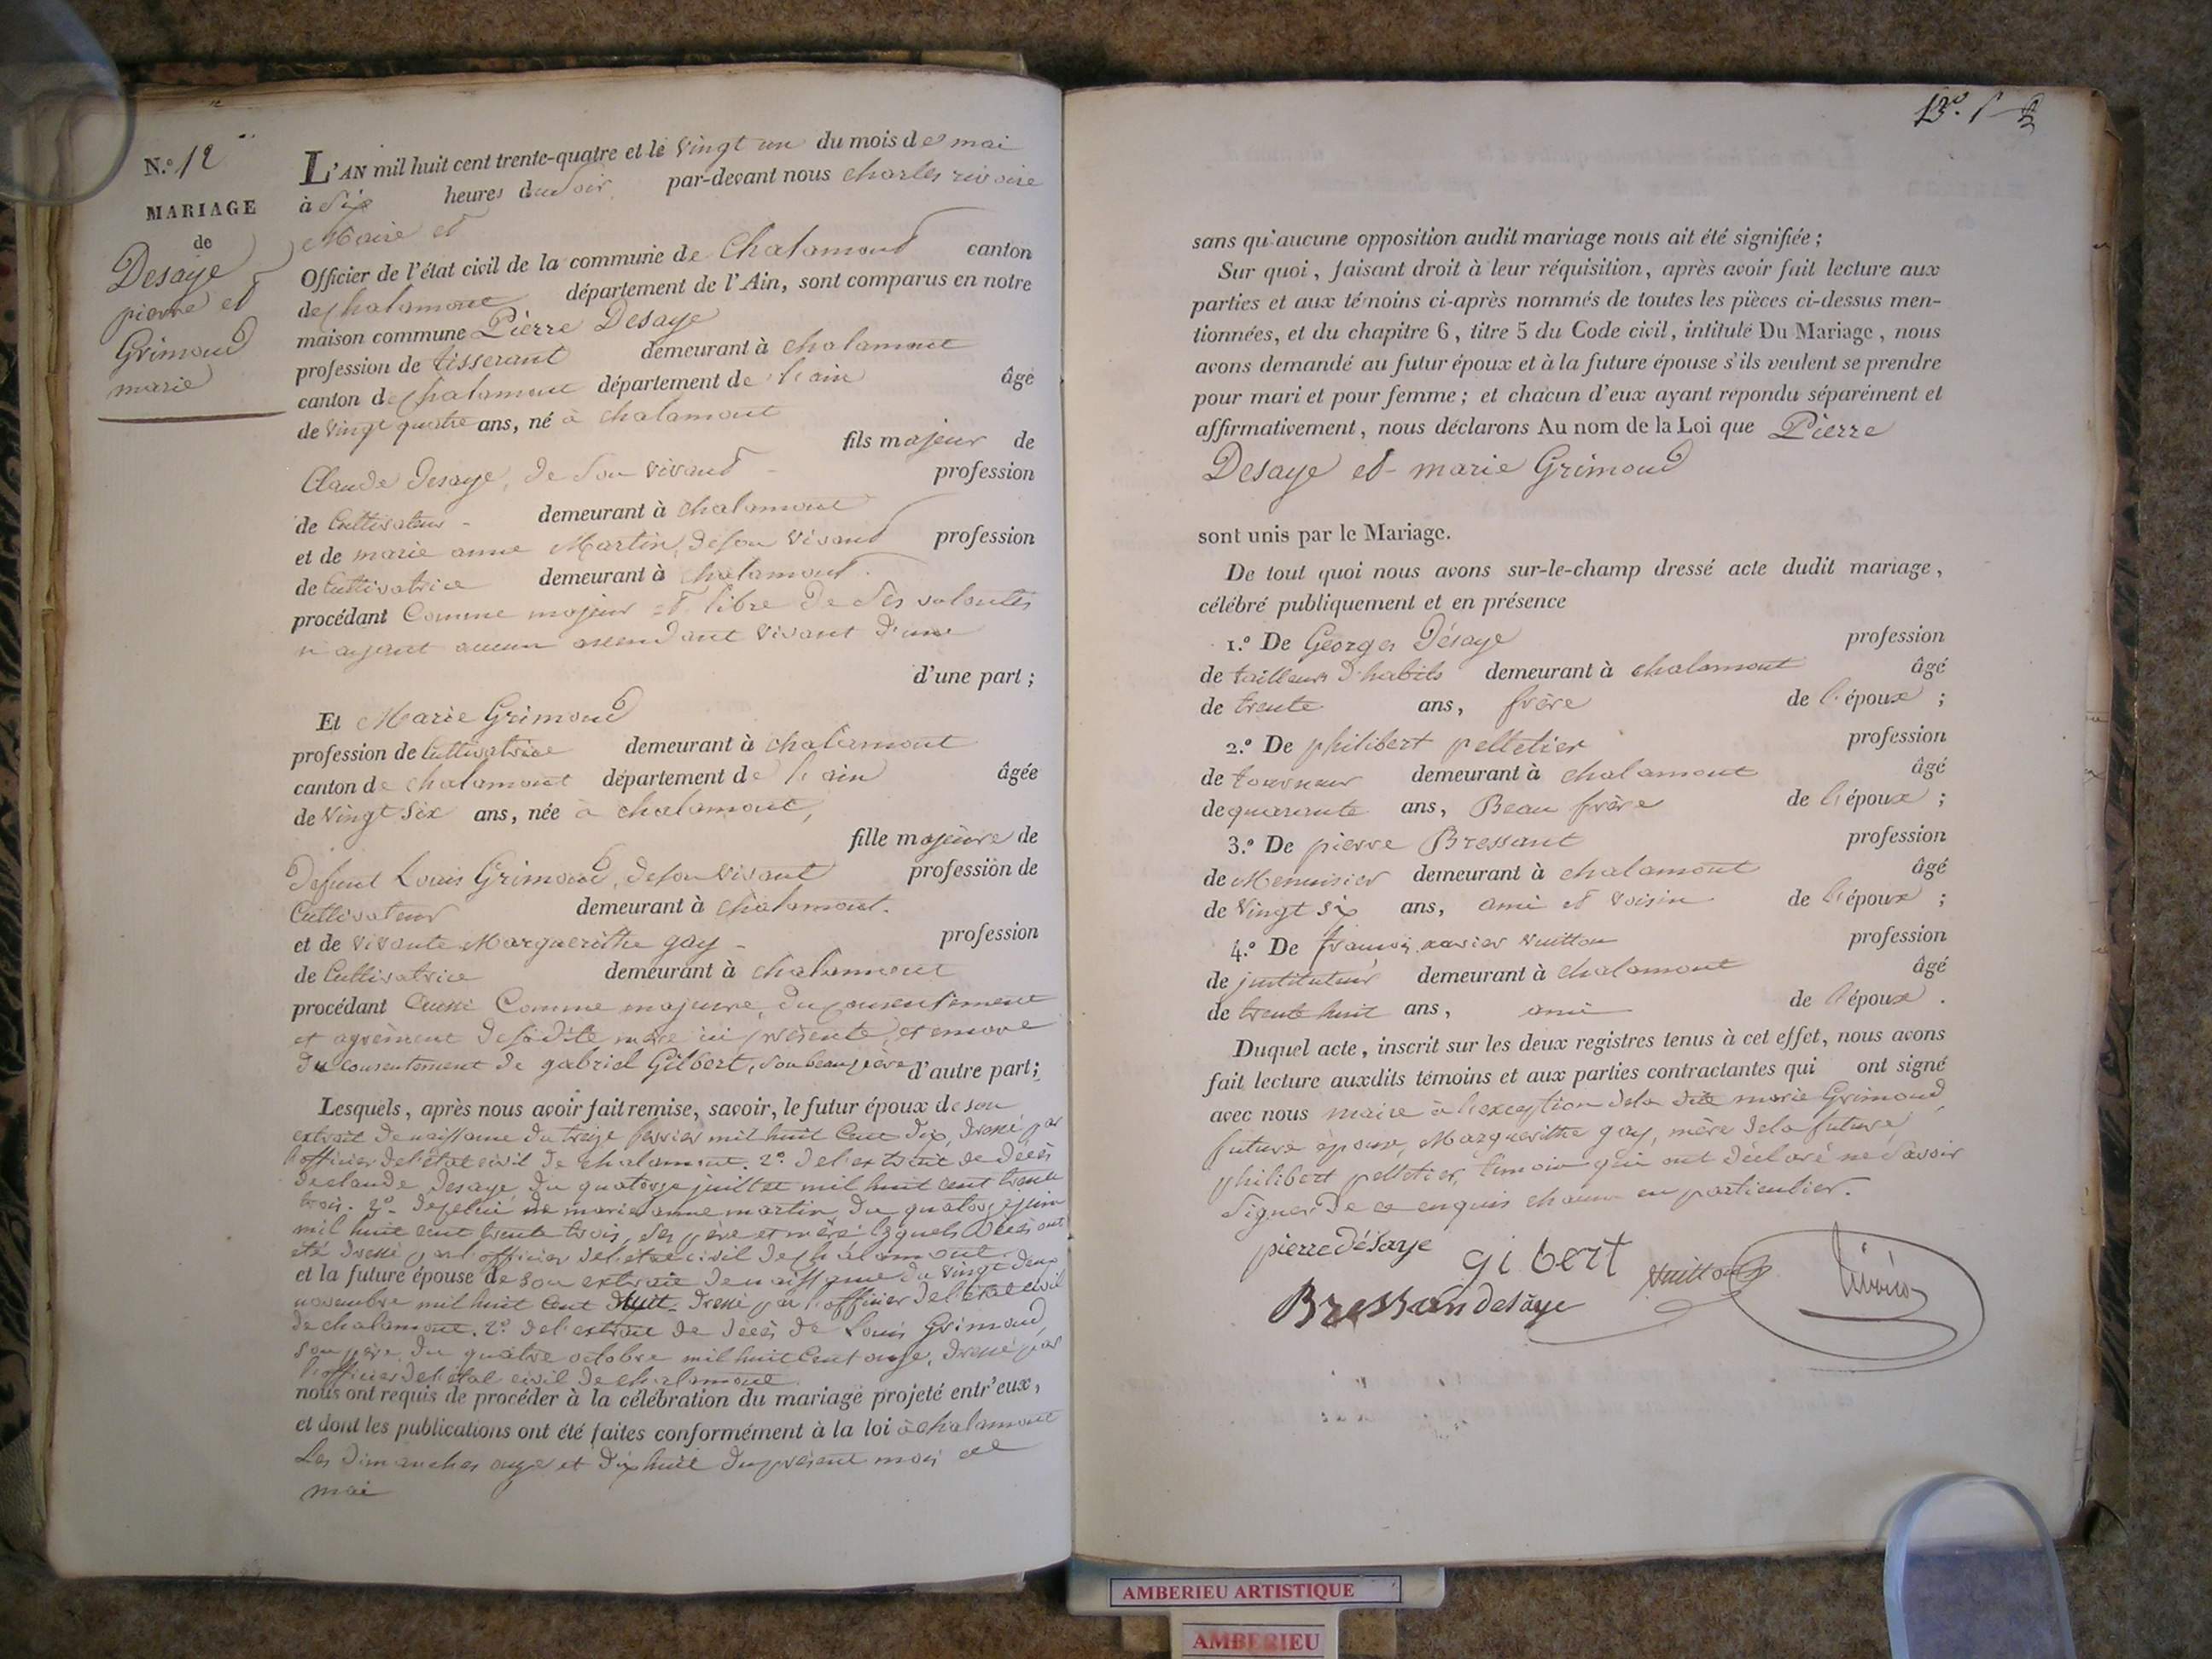 N.º 12
MARIAGE
de
Desaye
pierre et
Grimoud
marie
L'AN mil huit cent trente-quatre et le vingt un du mois de mai
à Six heures du Soir par-devant nous charles rivoire
Maire et
Officier de l'état civil de la commune de Chalamont canton
de chalamont département de l'Ain, sont comparus en notre
maison commune Pierre Desaye
profession de tisserant demeurant à chalamont
canton de chalamont département de l'ain âgé
de vingt quatre ans, né à chalamont
fils majeur de
Claude Desaye, de Son vivant profession
de Cultivateur - demeurant à chalamont
et de marie anne Martin, de son vivant profession
de Cultivatrice demeurant à chalamont.
procédant Comme majeur et libre de Ses volontés
n'ayant aucun ascendant vivant d'une
d'une part ;
Et Marie Grimoud
profession de Cultivatrice demeurant à chalamont
canton de chalamont département de l'ain âgée
de vingt Six ans, née à chalamont,
fille majeure de
Defunt Louis Grimoud, de son vivant profession de
Cultivateur demeurant à chalamont.
et de vivante Marguerithe gay - profession
de Cultivatrice demeurant à chalamont
procédant Aussi Comme majeure, du consentement
et agrément de sa dite mère ici présente, et encore
du consentement de gabriel Gilbert, son beau père d'autre part ;
Lesquels, après nous avoir fait remise, savoir, le futur époux de son
extrait de naissance du treize fevrier mil huit Cent dix, dressé par
l'officier de l'état civil de chalamont. 2º. de l'extrait de décès
de claude desaye du quatorze juillet mil huit cent trente
trois. 3º. de celui de marie anne martin, du quatorze juin
mil huit cent trente trois, Ses père et mère: lesquels décès ont
été dressé par l'officier de l'état civil de chalamont.
et la future épouse de son extrait de naissance du vingt deux
novembre mil huit Cent huit. dressé par l'officier de l'état civil
de chalamont. 2º. de l'extrait de décès de Louis Grimoud,
Son père, du quatre octobre mil huit Cent onze, dressé par
l'officier de l'état civil de chalamont.
nous ont requis de procéder à la célébration du mariage projeté entr'eux,
et dont les publications ont été faites conformément à la loi à chalamont
Les Dimanches onze et dix huit du présent mois de
mai
sans qu'aucune opposition audit mariage nous ait été signifiée ;
Sur quoi, faisant droit à leur réquisition, après avoir fait lecture aux
parties et aux témoins ci-après nommés de toutes les pièces ci-dessus men-
tionnées, et du chapitre 6, titre 5 du Code civil, intitulé Du Mariage, nous
avons demandé au futur époux et à la future épouse s'ils veulent se prendre
pour mari et pour femme ; et chacun d'eux ayant répondu séparément et
affirmativement, nous déclarons Au nom de la Loi que Pierre
Desaye et marie Grimoud
sont unis par le Mariage.
De tout quoi nous avons sur-le-champ dressé acte dudit mariage,
célébré publiquement et en présence
1.º De Georges Désaye profession
de tailleur d'habits demeurant à chalamont âgé
de trente ans, frère de l'époux ;
2.º De philibert pelletier profession
de tourneur demeurant à chalamont âgé
de quarante ans, Beau frère de l'époux ;
3.º De pierre Bressant profession
de Menuisier demeurant à chalamont âgé
de vingt six ans, ami et voisin de l'époux ;
4.º De françois xavier vuitton profession
de instituteur demeurant à chalamont âgé
de trente huit ans, ami de l'époux .
Duquel acte, inscrit sur les deux registres tenus à cet effet, nous avons
fait lecture auxdits témoins et aux parties contractantes qui ont signé
avec nous maire à l'exception de la dite marie Grimoud,
future épouse, Marguerithe gay, mère de la future,
philibert pelletier, témoin qui ont déclaré ne Savoir
Signer de ce enquis chacun en particulier.
pierre désaye gibert vuitton
Bressan desaye
AMBERIEU ARTISTIQUE
AMBERIEU